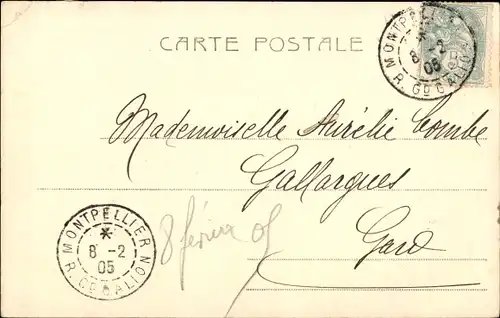 CARTE POSTALE
MONTPELLIER
8 -2
05
R. GD GALION
Mademoiselle Aurélie Combe
Gallargues
Gard
MONTPELLIER
8 -2
05
R. GD GALION
8 février 05